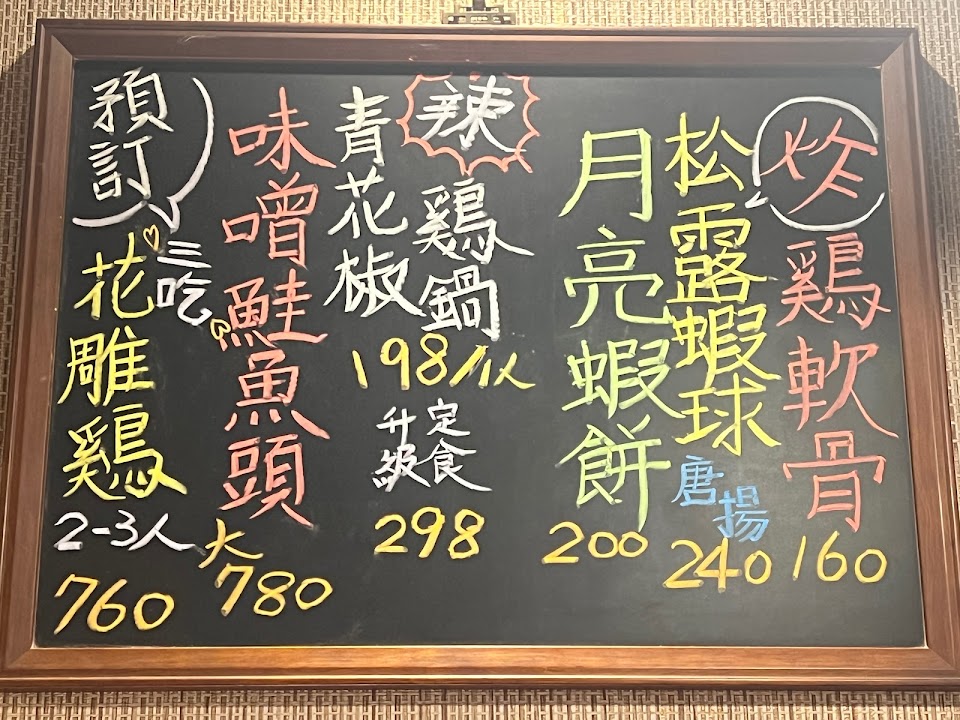 炸
雞軟骨
160
松露蝦球
唐揚
240
月亮蝦餅
200
辣
青花椒
雞鍋
198/1人
定食
升級
298
味噌鮭魚頭
大
780
預訂
三吃
花雕雞
2-3人
760